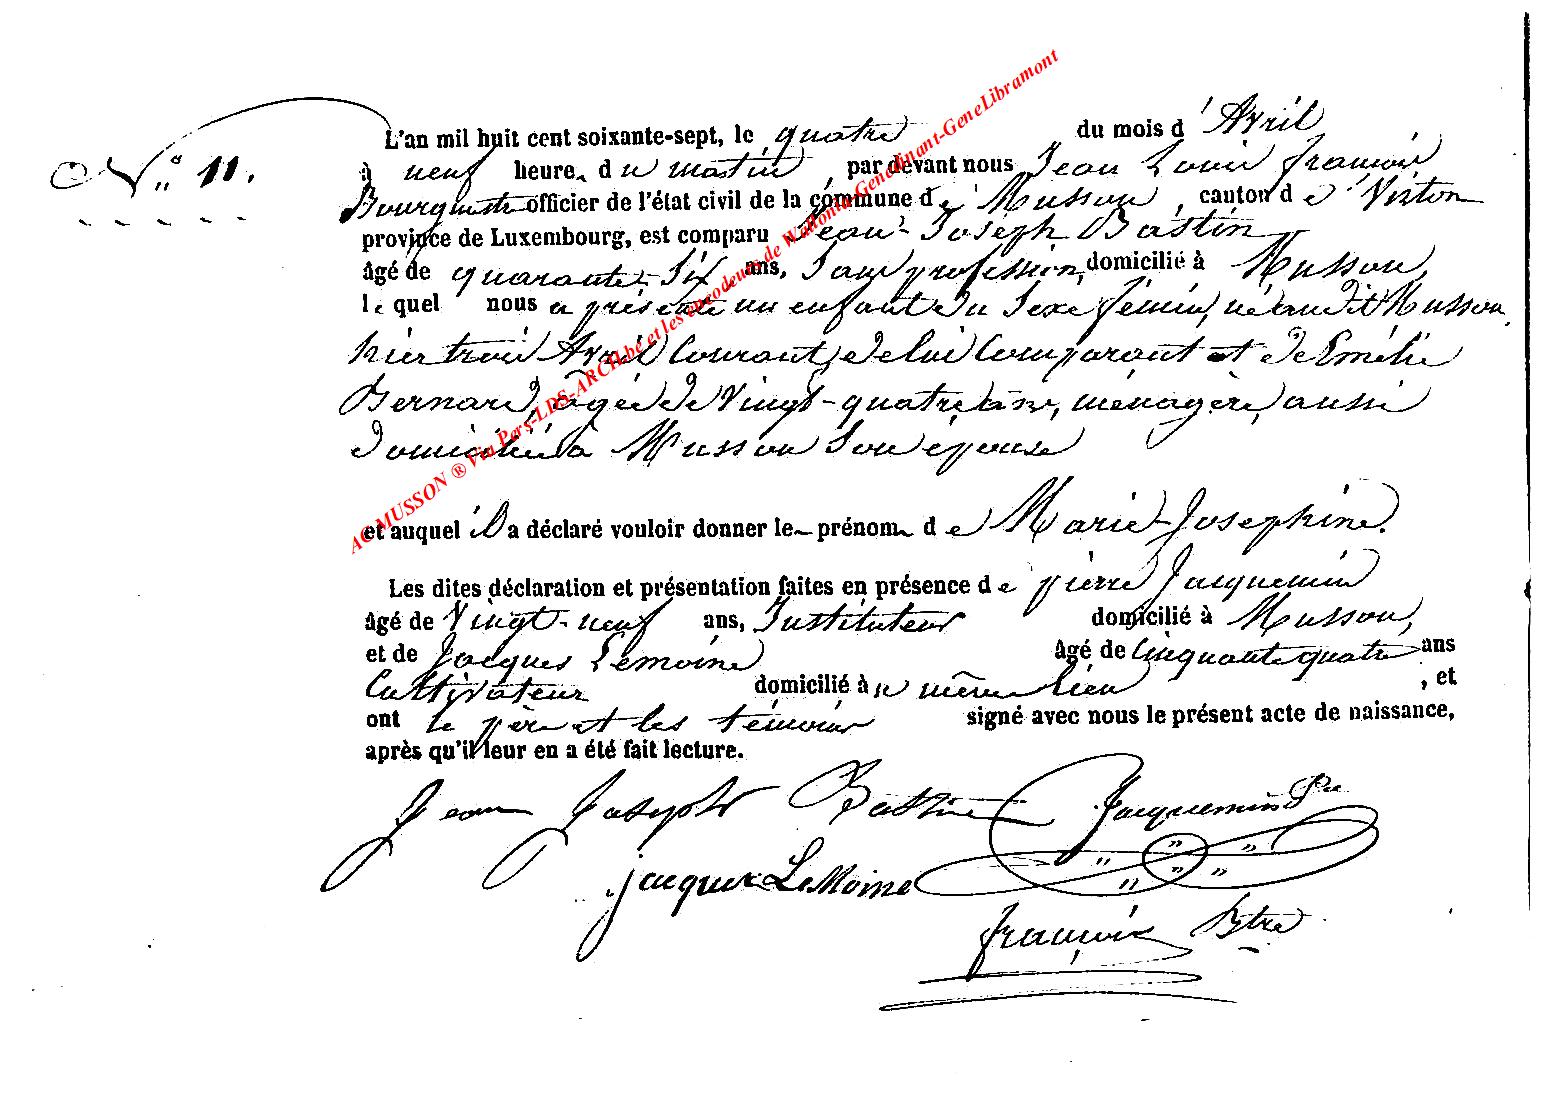 N° 11.
L'an mil huit cent soixante-sept, le quatre du mois d'Avril
à neuf heure du matin, par devant nous Jean Louis françois
Bourgmestre officier de l'état civil de la commune de Musson, canton de Virton
province de Luxembourg, est comparu Jean-Joseph Bastin
âgé de quarante-Six ans, Sans profession, domicilié à Musson,
lequel nous a présenté un enfant du Sexe féminin, né audit Musson,
hier trois Avril Courant, de lui Comparant et de Emélie
Bernard, agée de Vingt-quatre ans, ménagère, aussi
domiciliée à Musson Son épouse
et auquel il a déclaré vouloir donner le prénom de Marie-Josephine.
Les dites déclaration et présentation faites en présence de pierre Jacquemin
âgé de Vingt-neuf ans, Instituteur domicilié à Musson,
et de Jacques Lemoine âgé de Cinquante quatre ans
Cultivateur domicilié au même lieu, et
ont le père et les témoins signé avec nous le présent acte de naissance,
après qu'il leur en a été fait lecture.
Jean Joseph Bastin Jacquemin Pre
jacques LeMoine
françois Btre
AC MUSSON ® Via Pers-LDS-ARCH.be et les encodeurs de Wallonia-Genedinant-GeneLibramont